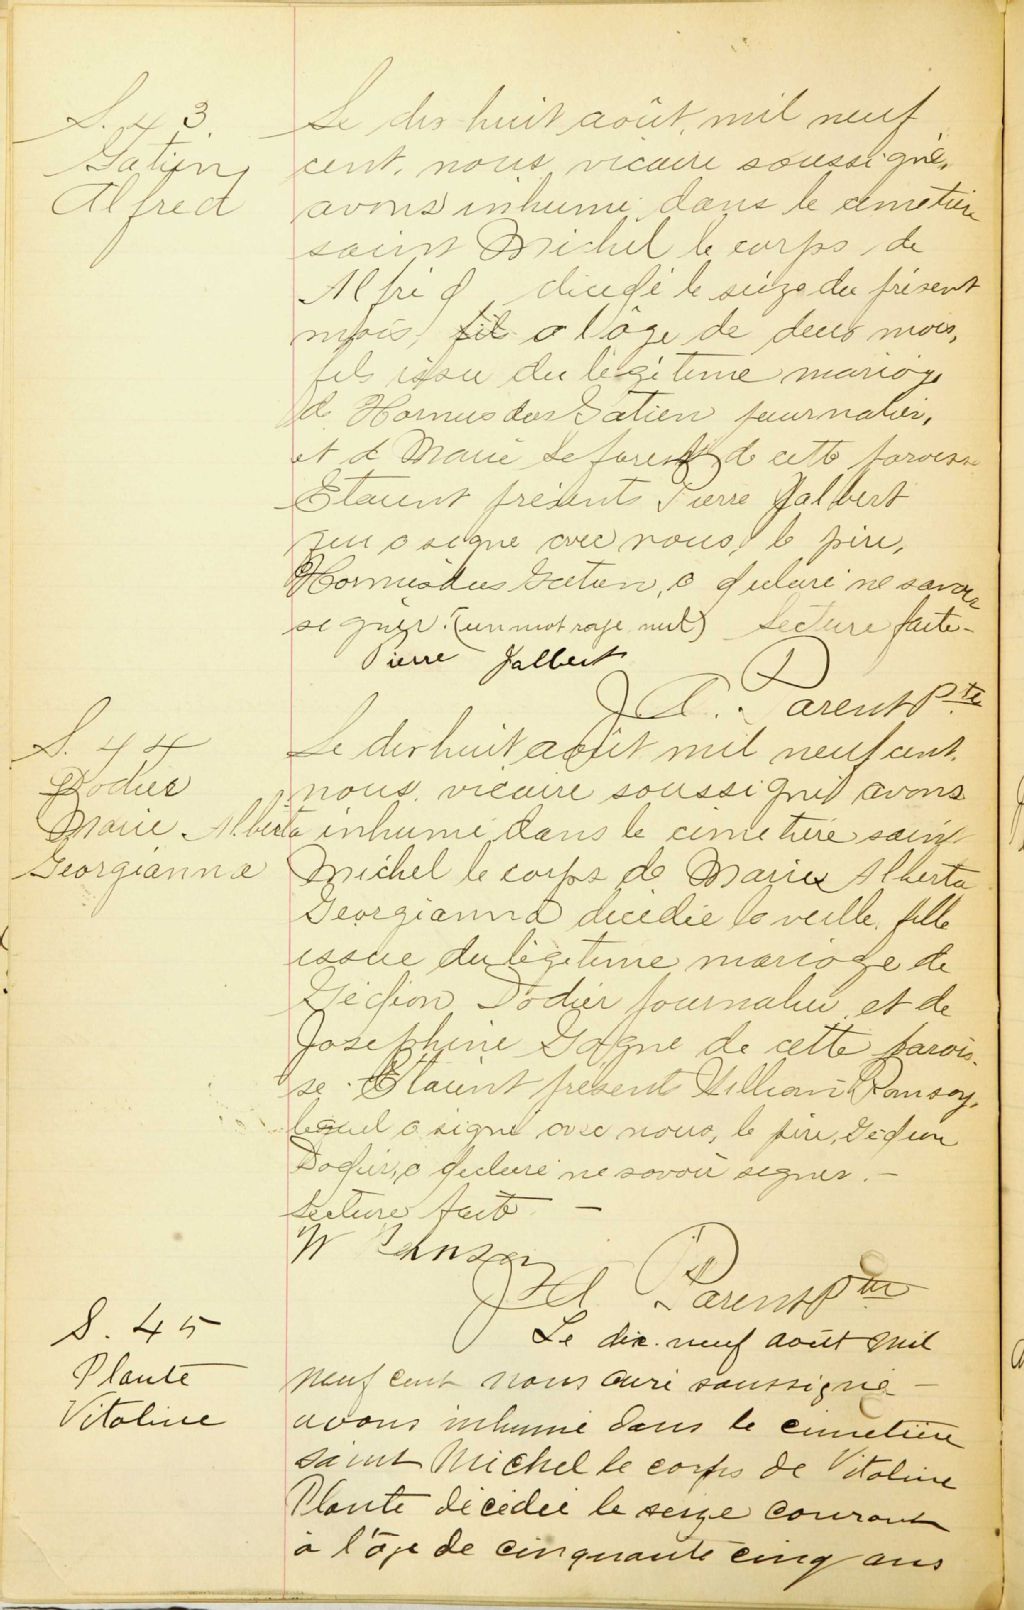 S. 43.
Gatien
Alfred
Le dix huit août, mil neuf
cent, nous, vicaire soussigné,
avons inhumé dans le cimetière
saint Michel le corps de
Alfred décédé le seize du présent
mois, fil a l'âge de deux mois,
fils issu du légitime mariage
de Hormisdas Gatien journalier,
et de Marie de cette paroisse
Etaient présents Pierre Jalbert
qui a signé avec nous, le père,
Hormisdas Gatien, a déclaré ne savoir
signer. (un mot rayé nul) Lecture faite -
Pierre Jalbert
J A. Parent Ptre
S. 44
Dodier
Marie Alberta
Georgianna
Le dix huit août mil neuf cent,
nous, vicaire soussigné avons
inhumé dans le cimetière saint
Michel le corps de Marie Alberta
Georgianna décédée la veille, fille
issue du légitime mariage de
Gédéon Dodier journalier, et de
Josephine Gagné de cette parois-
se. Etaient présent William Ramsay,
lequel a signé avec nous, le père, Gédéon
Dodier, a déclaré ne savoir signer. -
Lecture faite -
W Ramsay
J A Parent Ptre
S. 45
Plante
Vitaline
Le dix-neuf août mil
neuf cent nous curé soussigné -
avons inhumé dans le cimetière
saint Michel le corps de Vitaline
Plante décédée le seize courant
à l'âge de cinquante cinq ans